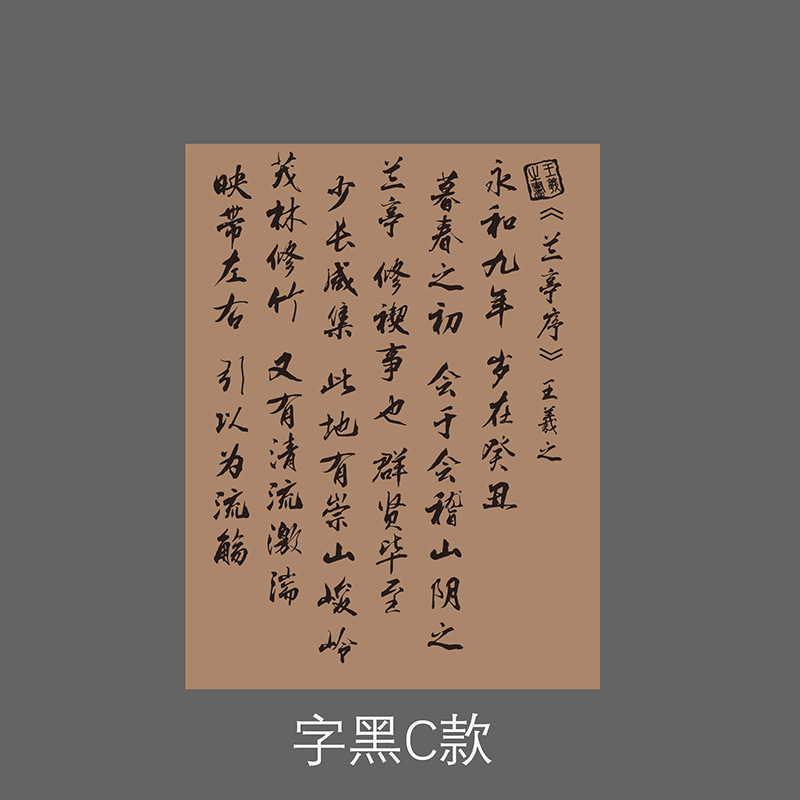 王羲之书
《兰亭序》王羲之
永和九年 岁在癸丑
暮春之初 会于会稽山阴之
兰亭 修禊事也 群贤毕至
少长咸集 此地有崇山峻岭
茂林修竹 又有清流激湍
映带左右 引以为流觞
字黑C款